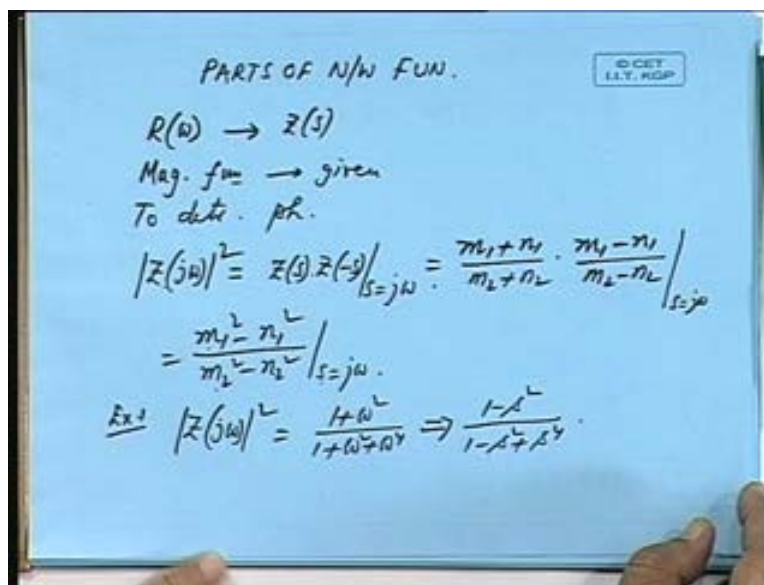 PARTS OF N/W FUN.
© CET
I.I.T. KGP
R(ω) → Z(s)
Mag. fun → given
To dete. ph.
|Z(jω)|² = Z(s).Z(-s)|s=jω = (m₁+n₁)/(m₂+n₂) · (m₁-n₁)/(m₂-n₂)|s=jω
= (m₁²-n₁²)/(m₂²-n₂²)|s=jω.
Ex1 |Z(jω)|² = (1+ω²)/(1+ω²+ω⁴) ⇒ (1-s²)/(1-s²+s⁴).